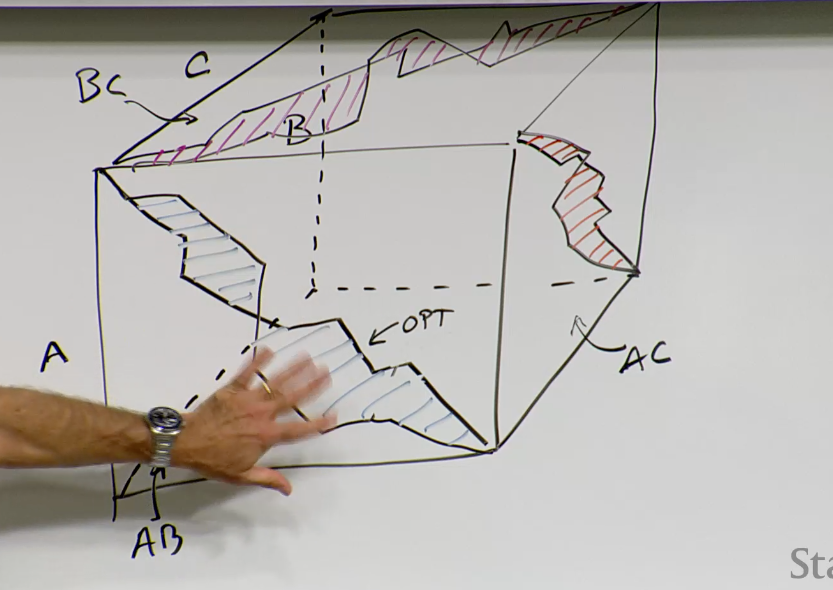 C
BC
B
OPT
A
AC
AB
Sta